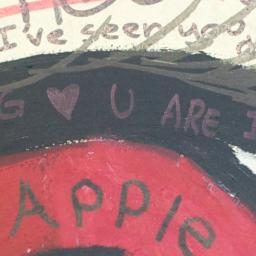 I've seen you
G ♥ U ARE I
Apple